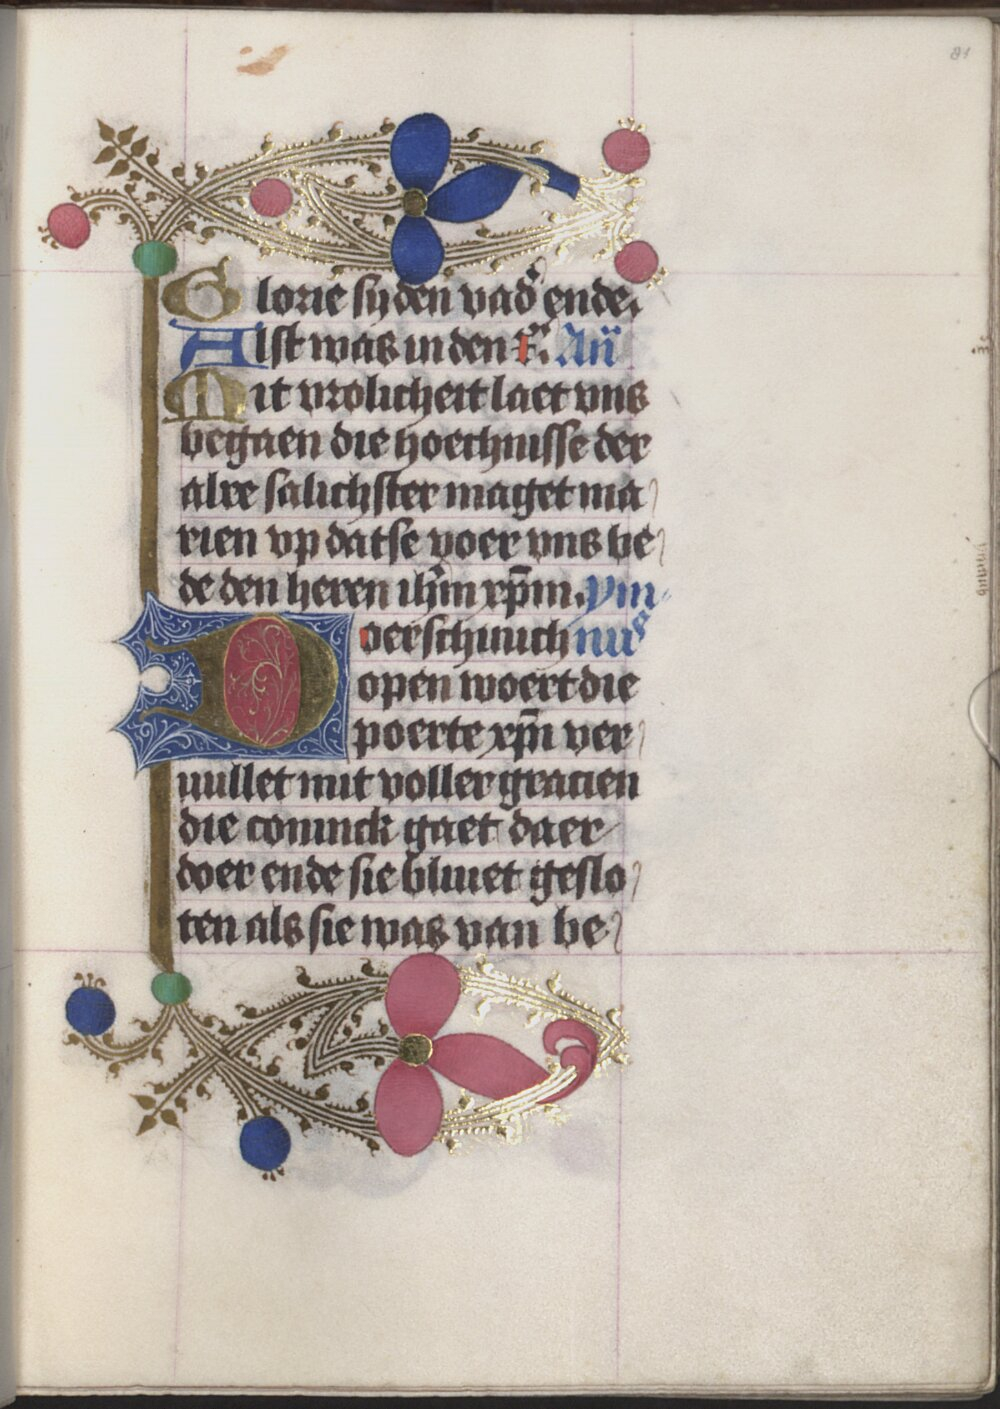 Glorie sy den vad' ende.
Alst was in den Añ
Mit vrolicheit laet vns
begaen die hoechnisse der
alre salichster maget ma
rien vp datse voer vns be
de den heren ihm̄ xpm̄. ym
oerschinich nus
open woert die
poerte xpī ver
uullet mit voller gracien
die coninck gaet daer
doer ende sie bliuet geslo
ten als sie was van be